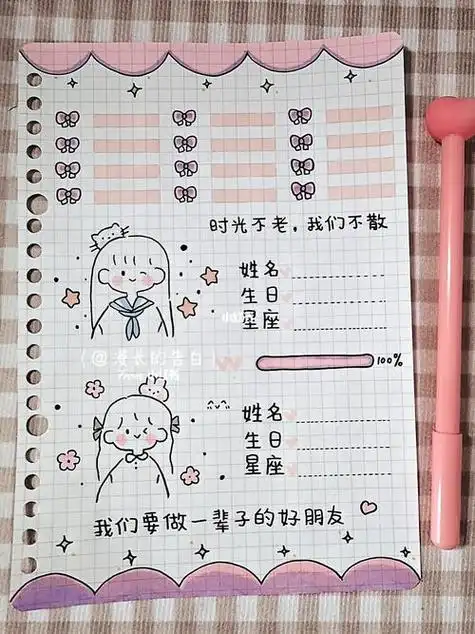 时光不老，我们不散
姓名
生日
星座
100%
姓名
生日
星座
我们要做一辈子的好朋友